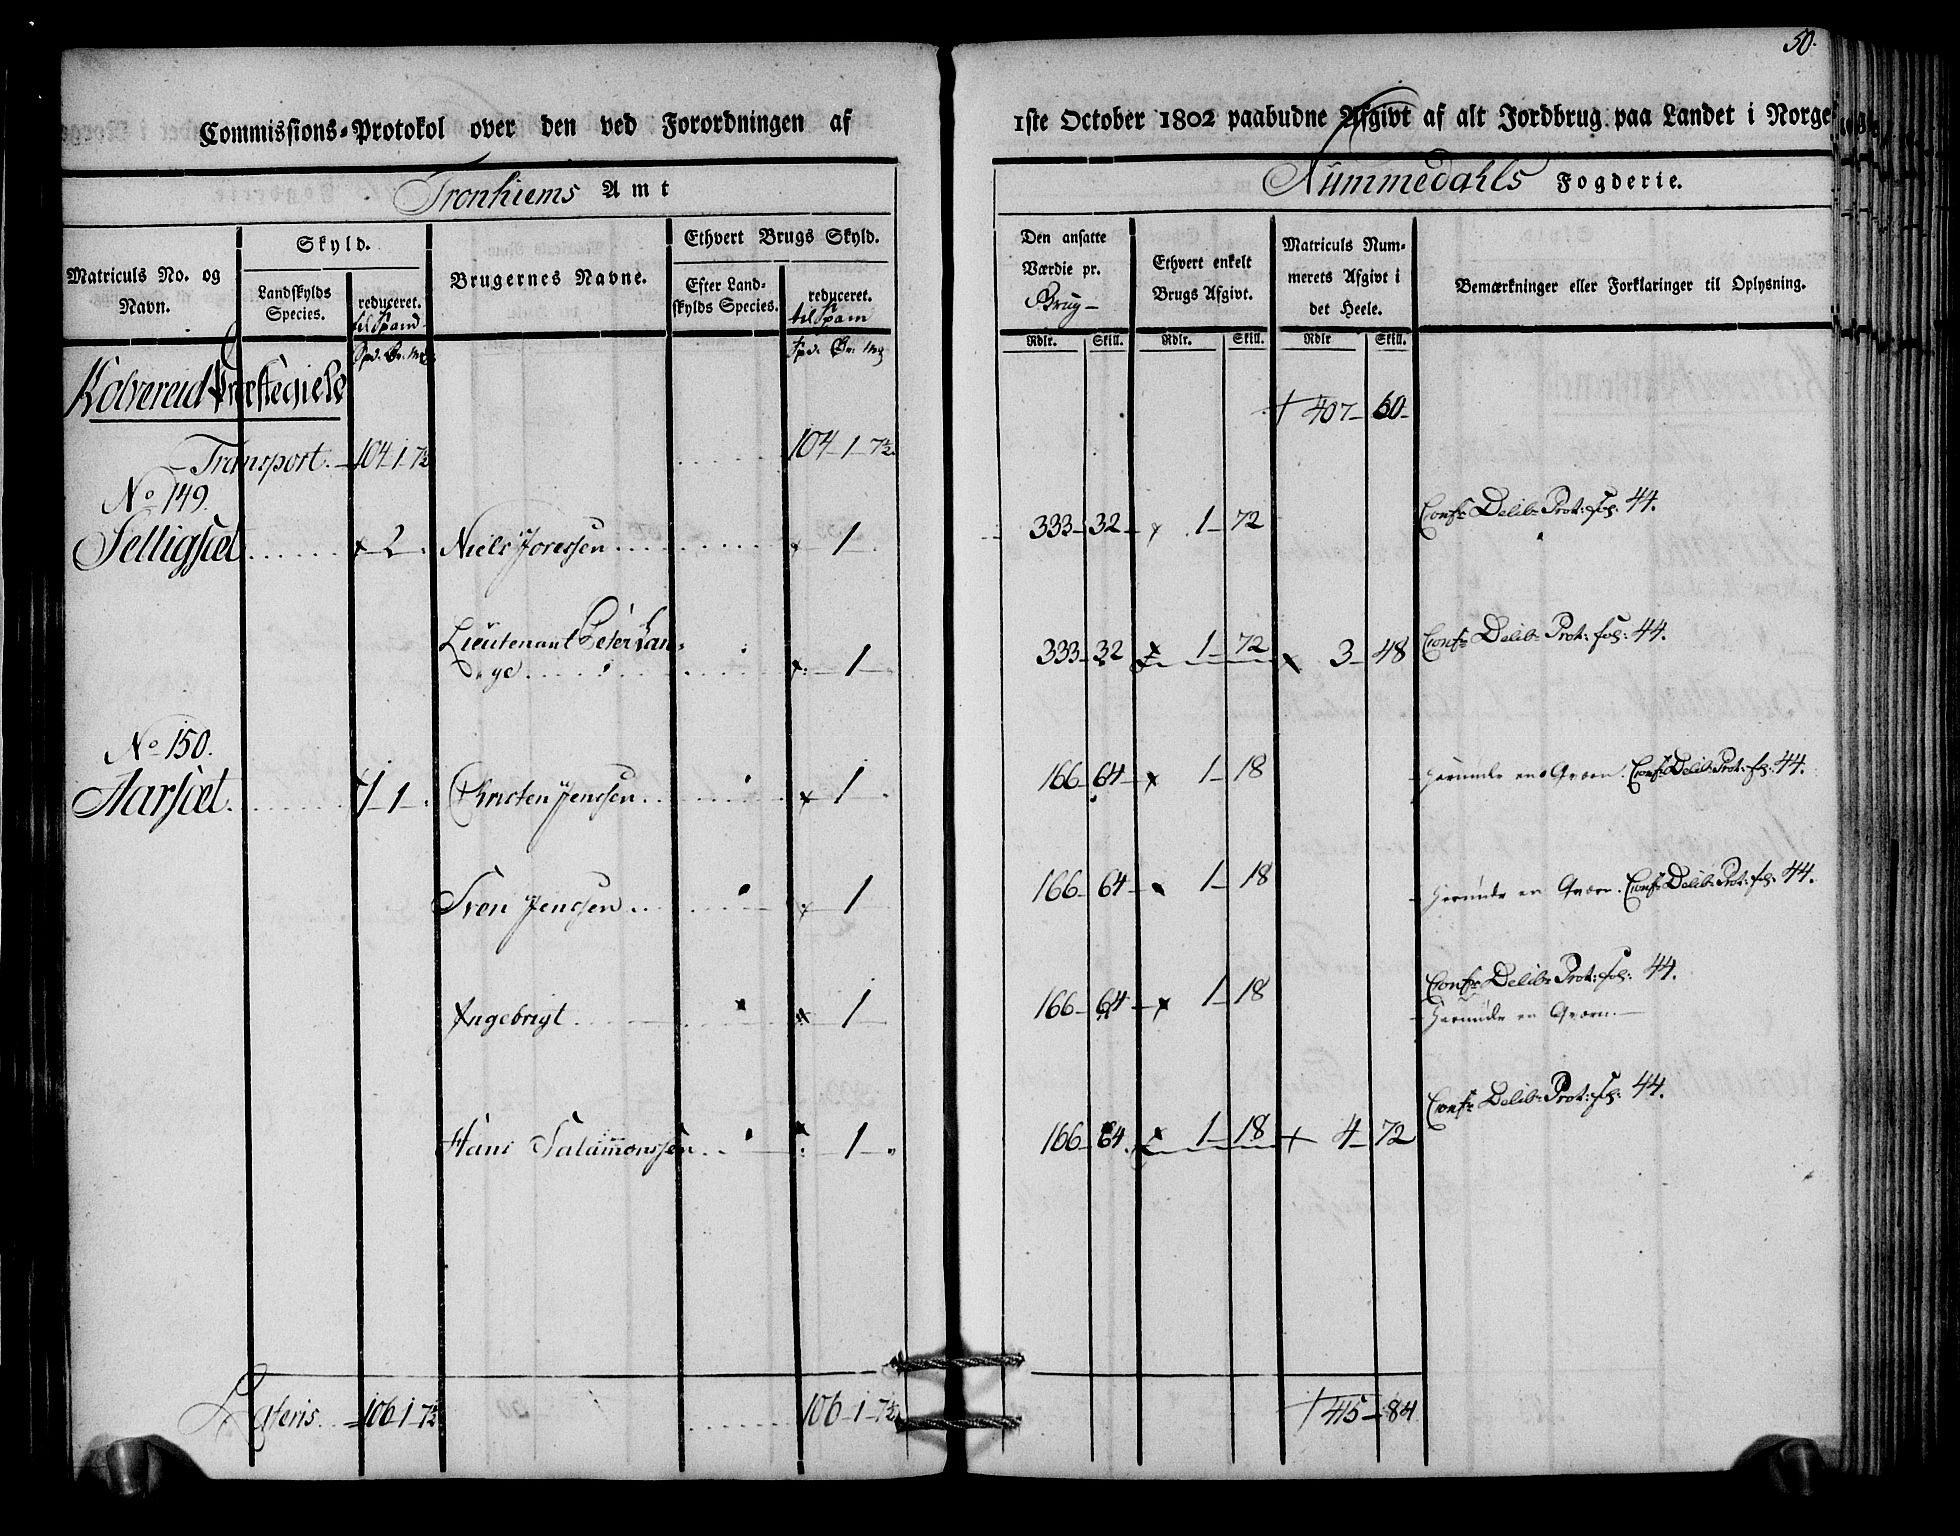 50.
Commissions=Protokol over den ved Forordningen af 1ste October 1802 paabudne Afgivt af alt Jordbrug paa Landet i Norge
Tronhiems Amt
Nummedahls Fogderie.
Matriculs No. og Navn.
Skyld.
Landskylds Species.
reduceret. til Spand
Brugernes Navne.
Ethvert Brugs Skyld.
Efter Land-skylds Species.
reduceret. til Spam
Den ansatte Værdie pr. Brug -
Ethvert enkelt Brugs Afgivt.
Matriculs Num-merets Afgivt i det Heele.
Bemærkninger eller Forklaringer til Oplysning.
Rdlr. Skill. Rdlr. Skill. Rdlr Skill.
Spd. Ør. Mg Spd. Ør. Mg
Kolvereid Præstegield
407 - 60 -
Transport. - 104 - 1 - 7½ 104 - 1 - 7½
No 149.
Selligsæt 2 Niels Joressen 1 333 - 32 - 1 - 72 Confr Delib: Prot: fol: 44.
Lieutenant Peter Lan=
ge 1 333 - 32 1 - 72 3 - 48 Confr Delib: Prot: fol: 44.
No 150.
Aarsæt 1 - 1 Christen Jenssen 1 166 - 64 - 1 - 18 herunder en Qværn. Confr Delib: Prot: fol: 44.
Sven Jenssen 1 166 - 64 - 1 - 18 herunder en Qværn. Confr Delib: Prot: fol: 44.
Ingebrigt 1 166 - 64 - 1 - 18 Confr Delib: Prot: fol: 44.
herunder en Qværn.
Hans Salammonssen 1 166 - 64 1 - 18 4 - 72 Confr Delib: Prot: fol: 44.
Lateris. 106 - 1 - 7½ 106 - 1 - 7½ 415 - 84